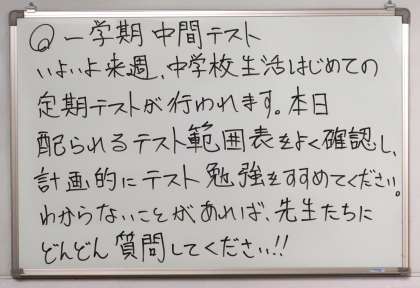 ◎一学期 中間テスト
いよいよ来週、中学校生活はじめての
定期テストが行われます。本日
配られるテスト範囲表をよく確認し、
計画的にテスト勉強をすすめてください。
わからないことがあれば、先生たちに
どんどん質問してください!!